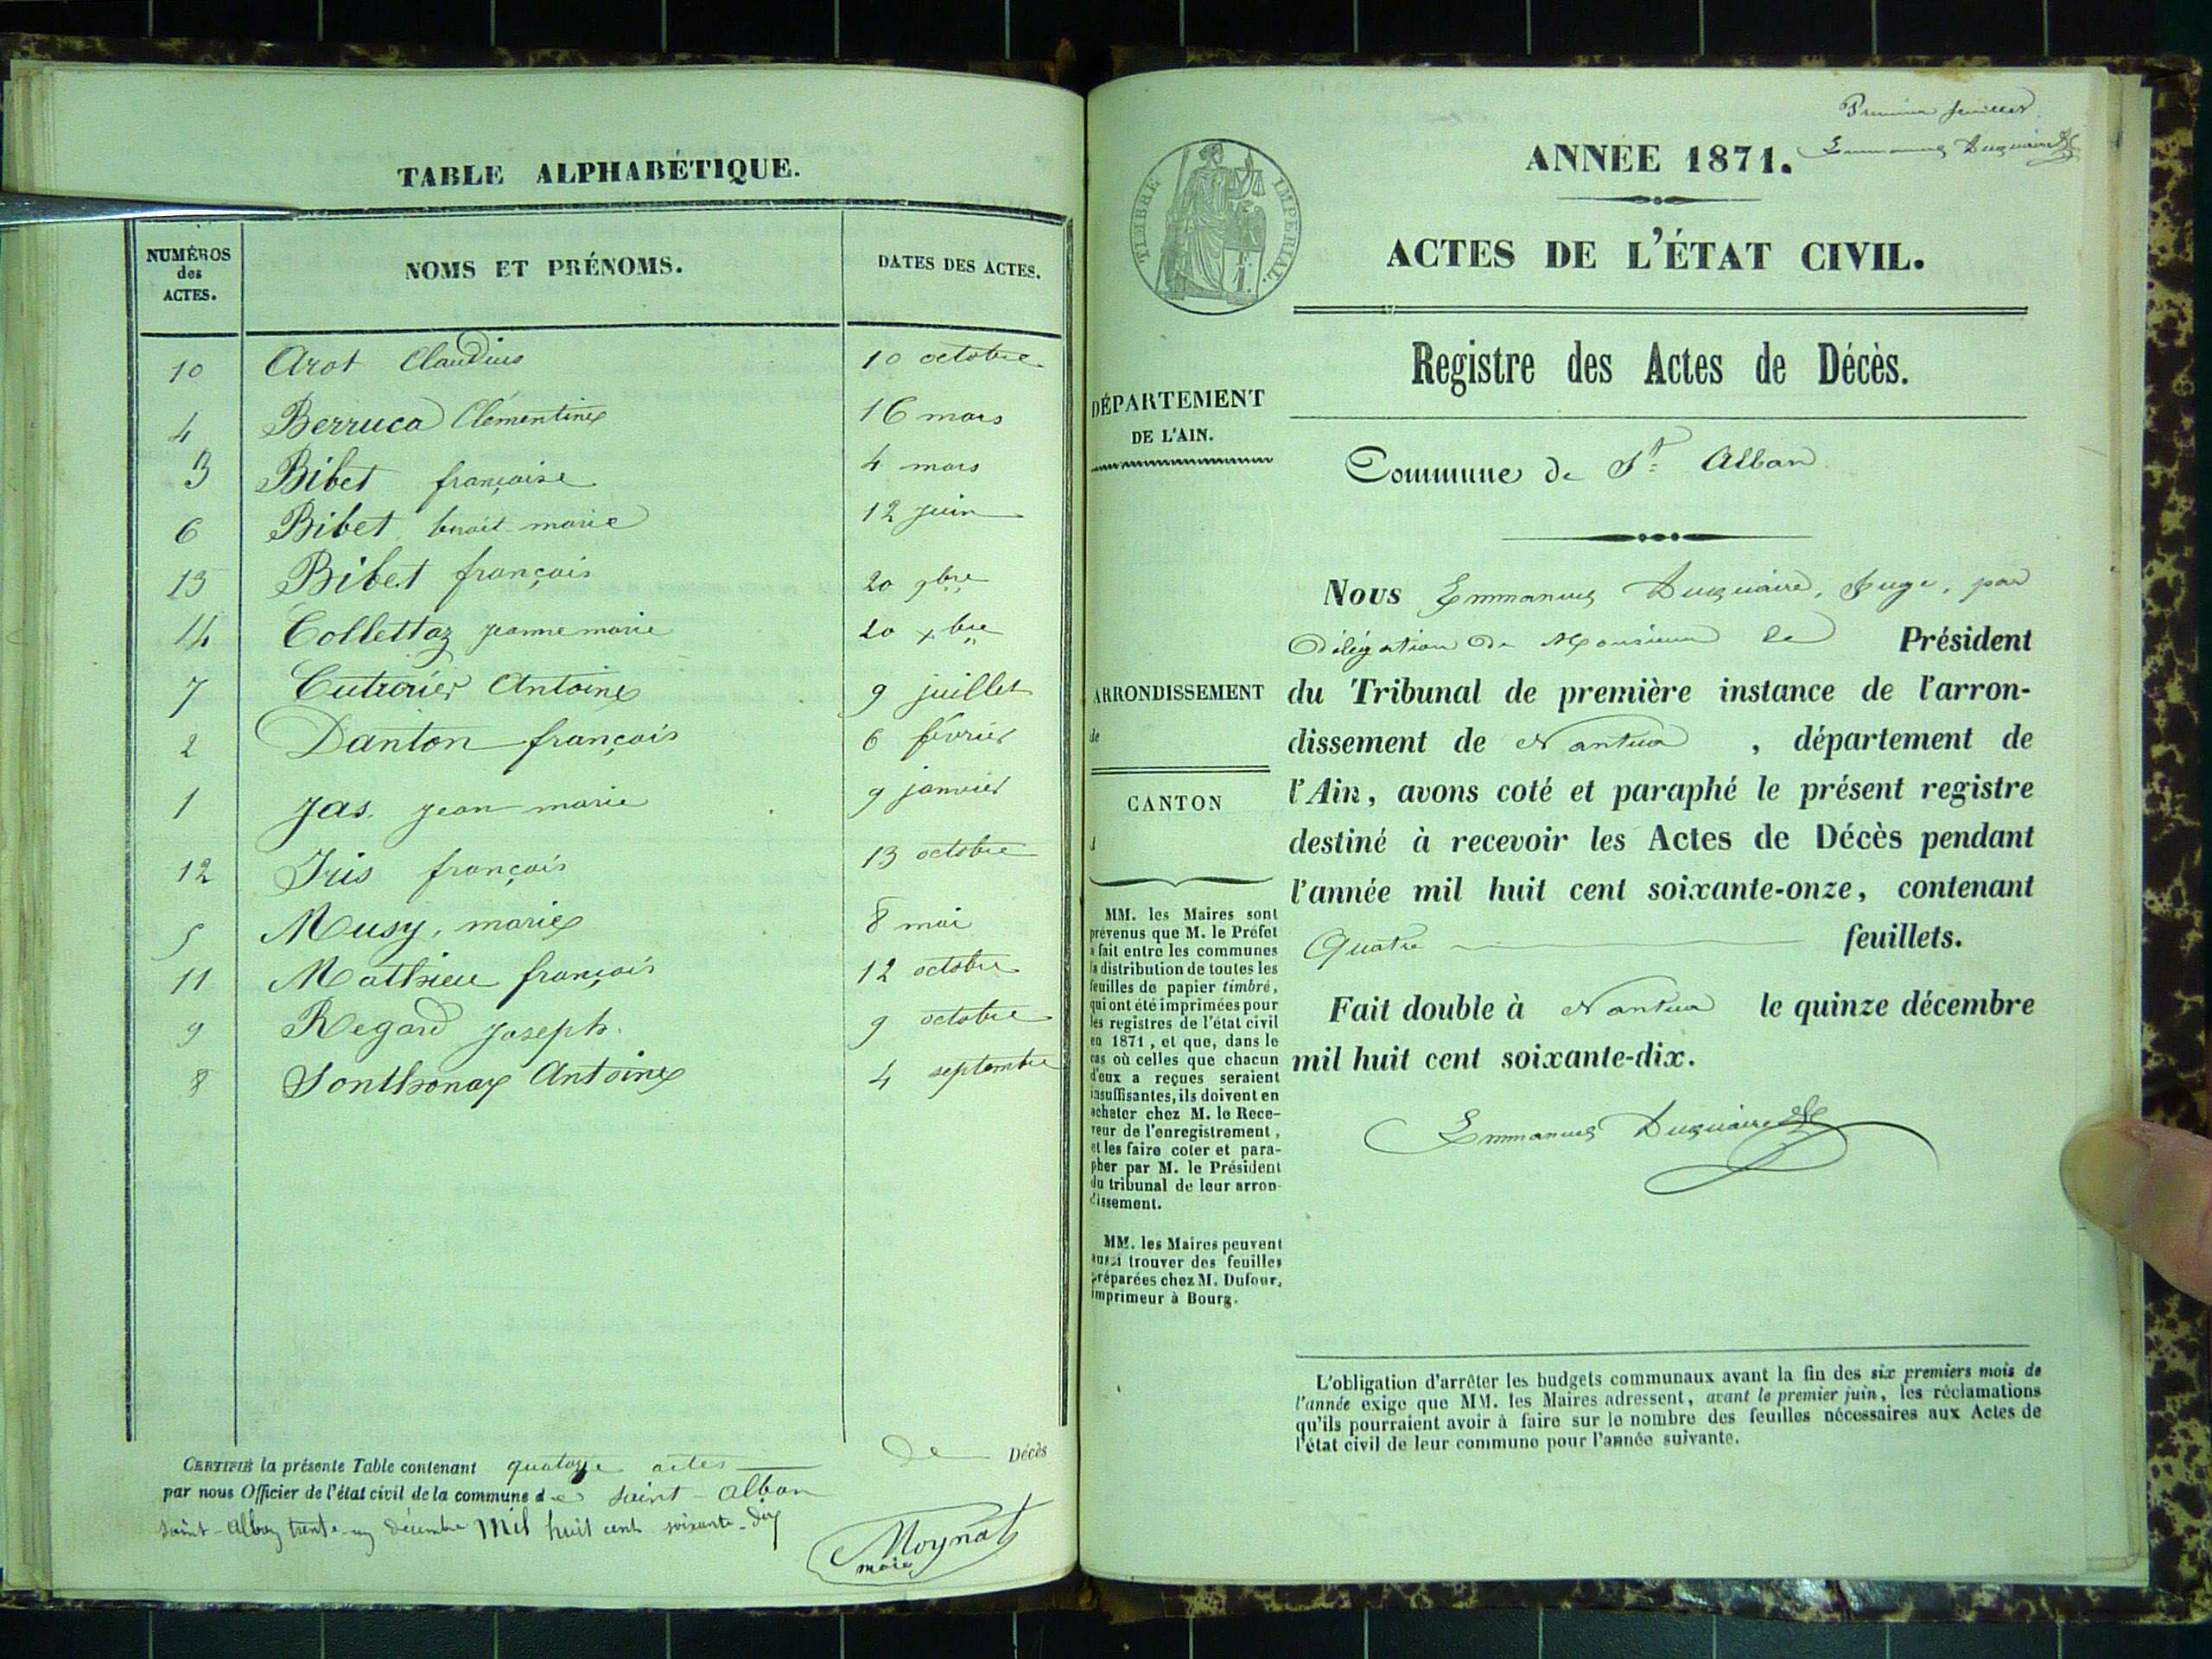 TABLE ALPHABÉTIQUE.
NUMÉROS des ACTES. NOMS ET PRÉNOMS. DATES DES ACTES.
10 Arot Claudius 10 octobre
4 Berruca Clementine 16 mars
3 Bibet françoise 4 mars
6 Bibet benoit-marie 12 juin
13 Bibet françois 20 9bre
14 Collettaz jeanne marie 20 xbre
7 Cutivier Antoine 9 juillet
2 Danton françois 6 février
1 Jas. jean-marie 9 janvier
12 Iris françois 13 octobre
5 Musy, marie 8 mai
11 Mathieu françois 12 octobre
9 Regard joseph. 9 octobre
8 Sonthonax Antoine 4 septembre
CERTIFIÉ la présente Table contenant quatorze actes de Décès
par nous Officier de l'état civil de la commune de saint-Alban
saint-Alban trente-un décembre mil huit cent soixante-dix
Moynat
maire
Premier feuillet.
Emmanuel Duquaire
TIMBRE IMPÉRIAL.
ANNÉE 1871.
ACTES DE L'ÉTAT CIVIL.
Registre des Actes de Décès.
DÉPARTEMENT
DE L'AIN.
Commune de St Alban
ARRONDISSEMENT
de
CANTON
d
MM. les Maires sont
prévenus que M. le Préfet
a fait entre les communes
la distribution de toutes les
feuilles de papier timbré,
qui ont été imprimées pour
les registres de l'état civil
en 1871, et que, dans le
cas où celles que chacun
d'eux a reçues seraient
insuffisantes, ils doivent en
acheter chez M. le Rece-
veur de l'enregistrement,
et les faire coter et para-
pher par M. le Président
du tribunal de leur arron-
dissement.
MM. les Maires peuvent
aussi trouver des feuilles
préparées chez M. Dufour,
imprimeur à Bourg.
Nous Emmanuel Duquaire, Juge, par
délégation de Monsieur le Président
du Tribunal de première instance de l'arron-
dissement de Nantua, département de
l'Ain, avons coté et paraphé le présent registre
destiné à recevoir les Actes de Décès pendant
l'année mil huit cent soixante-onze, contenant
Quatre feuillets.
Fait double à Nantua le quinze décembre
mil huit cent soixante-dix.
Emmanuel Duquaire
L'obligation d'arrêter les budgets communaux avant la fin des six premiers mois de
l'année exige que MM. les Maires adressent, avant le premier juin, les réclamations
qu'ils pourraient avoir à faire sur le nombre des feuilles nécessaires aux Actes de
l'état civil de leur commune pour l'année suivante.